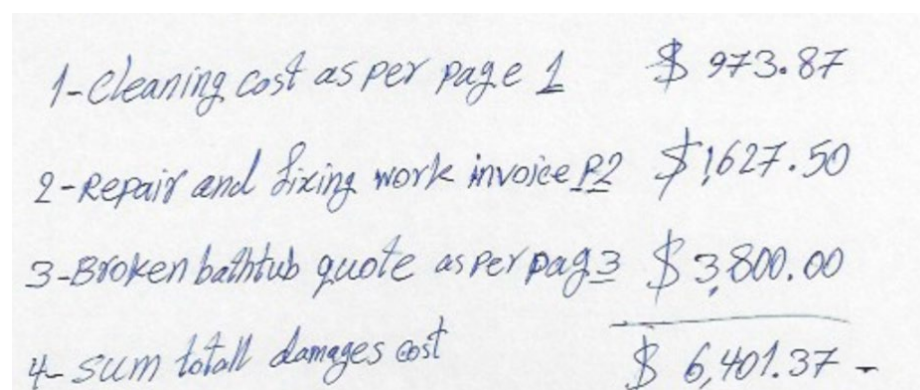 1-Cleaning cost as per page 1 $ 973.87
2-Repair and fixing work invoice P2 $1,627.50
3-Broken bathtub quote as per pag 3 $3,800.00
4- Sum totall damages cost $ 6,401.37 -